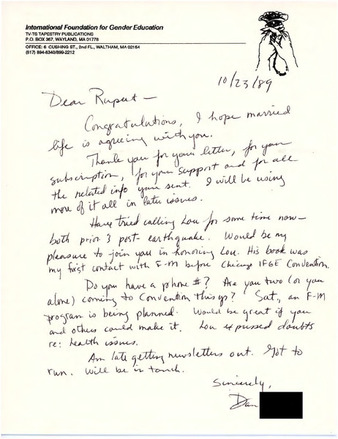 International Foundation for Gender Education
TV-TS TAPESTRY PUBLICATIONS
P.O. BOX 367, WAYLAND, MA 01778
OFFICE: 6 CUSHING ST., 2nd FL., WALTHAM, MA 02154
(617) 894-8340/899-2212
10/23/89
Dear Rupert —
Congratulations, I hope married
life is agreeing with you.
Thank you for your letter, for your
subscription, for your support and for all
the related info you sent. I will be using
more of it all in later issues.
Have tried calling Lou for some time now —
both prior & post earthquake. Would be my
pleasure to join you in honoring Lou. His book was
my first contact with F-M before Chicago IFGE Convention.
Do you have a phone #? Are you two (or you
alone) coming to Convention this yr? Sat., an F-M
program is being planned. Would be great if you
and others could make it. Lou expressed doubts
re: health issues.
Am late getting newsletters out. Got to
run. Will be in touch.
Sincerely,